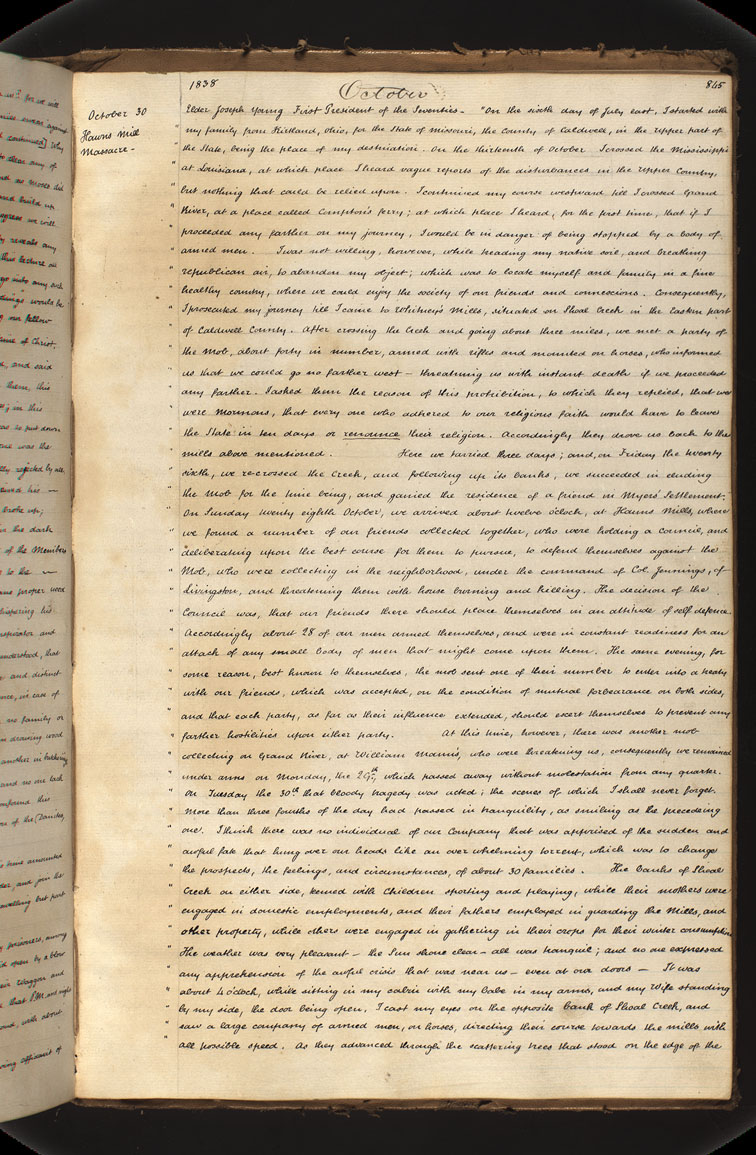 1838
October
845
October 30
Hawns Mill
Massacre-
Elder Joseph Young First President of the Seventies- "On the sixth day of July last, I started with
" my family from Kirtland, Ohio, for the State of Missouri, the County of Caldwell, in the upper part of
" the State, being the place of my destination. On the thirteenth of October I crossed the Mississippi
" at Louisiana, at which place I heard vague reports of the disturbances in the upper Country,
" but nothing that could be relied upon. I continued my course westward till I crossed Grand
" River, at a place called Compton's ferry; at which place I heard, for the first time, that if I
" proceeded any farther on my journey, I would be in danger of being stopped by a body of
" armed men. I was not willing, however, while treading my native soil, and breathing
" republican air, to abandon my object; which was to locate myself and family in a fine
" healthy country, where we could enjoy the society of our friends and connexions. Consequently,
" I prosecuted my journey till I came to Whitney's Mills, situated on Shoal Creek in the Eastern part
" of Caldwell County. After crossing the Creek and going about three miles, we met a party of
" the mob, about forty in number, armed with rifles and mounted on horses, who informed
" us that we could go no farther west - threatening us with instant death if we proceeded
" any farther. I asked them the reason of this prohibition, to which they replied, that we
" were Mormons, that every one who adhered to our religious faith would have to leave
" the State in ten days or renounce their religion. Accordingly they drove us back to the
" mills above mentioned. Here we tarried three days; and, on Friday the twenty
" sixth, we re-crossed the Creek, and following up its banks, we succeeded in eluding
" the mob for the time being, and gained the residence of a friend in Myers' Settlement."
" On Sunday twenty eighth October, we arrived about twelve o'clock, at Hauns Mills, where
" we found a number of our friends collected together, who were holding a council, and
" deliberating upon the best course for them to pursue, to defend themselves against the
" Mob, who were collecting in the neighborhood, under the command of Col. Jennings, of
" Livingston, and threatening them with house burning and killing. The decision of the
" Council was, that our friends there should place themselves in an attitude of self defence.
" Accordingly about 28 of our men armed themselves, and were in constant readiness for an
" attack of any small body of men that might come upon them. The same evening, for
" some reason, best known to themselves, the mob sent one of their number to enter into a treaty
" with our friends, which was accepted, on the condition of mutual forbearance on both sides,
" and that each party, as far as their influence extended, should exert themselves to prevent any
" farther hostilities upon either party. At this time, however, there was another mob
" collecting on Grand River, at William Mann's, who were threatening us, consequently we remained
" under arms on Monday, the 29th, which passed away without molestation from any quarter.
" On Tuesday the 30th that bloody tragedy was acted; the scenes of which I shall never forget.
" More than three fourths of the day had passed in tranquility, as smiling as the preceding
" one. I think there was no individual of our Company that was apprised of the sudden and
" awful fate that hung over our heads like an over whelming torrent, which was to change
" the prospects, the feelings, and circumstances, of about 30 families. The Banks of Shoal
" Creek on either side, teemed with Children sporting and playing, while their mothers were
" engaged in domestic employments, and their fathers employed in guarding the Mills, and
" other property, while others were engaged in gathering in their crops for their winter consumption
" The weather was very pleasant - the Sun shone clear - all was tranquil; and no one expressed
" any apprehension of the awful crisis that was near us - even at our doors - It was
" about 4 o'clock, while sitting in my cabin with my babe in my arms, and my Wife standing
" by my side, the door being open, I cast my eyes on the opposite bank of Shoal Creek, and
" saw a large company of armed men, on horses, directing their course towards the mills with
" all possible speed. As they advanced through the scattering trees that stood on the edge of the